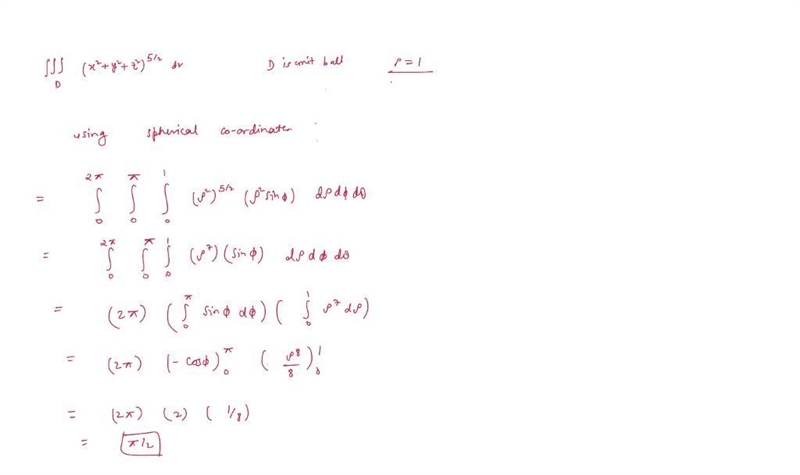 ∫∫∫_D (x²+y²+z²)^{5/2} dv D is unit ball ρ=1
using spherical co-ordinates
= ∫_0^{2π} ∫_0^π ∫_0^1 (ρ²)^{5/2} (ρ² sinϕ) dρ dϕ dθ
= ∫_0^{2π} ∫_0^π ∫_0^1 (ρ⁷) (sinϕ) dρ dϕ dθ
= (2π) (∫_0^π sinϕ dϕ) (∫_0^1 ρ⁷ dρ)
= (2π) (-cosϕ)_0^π (ρ⁸/8)_0^1
= (2π) (2) (1/8)
= π/2